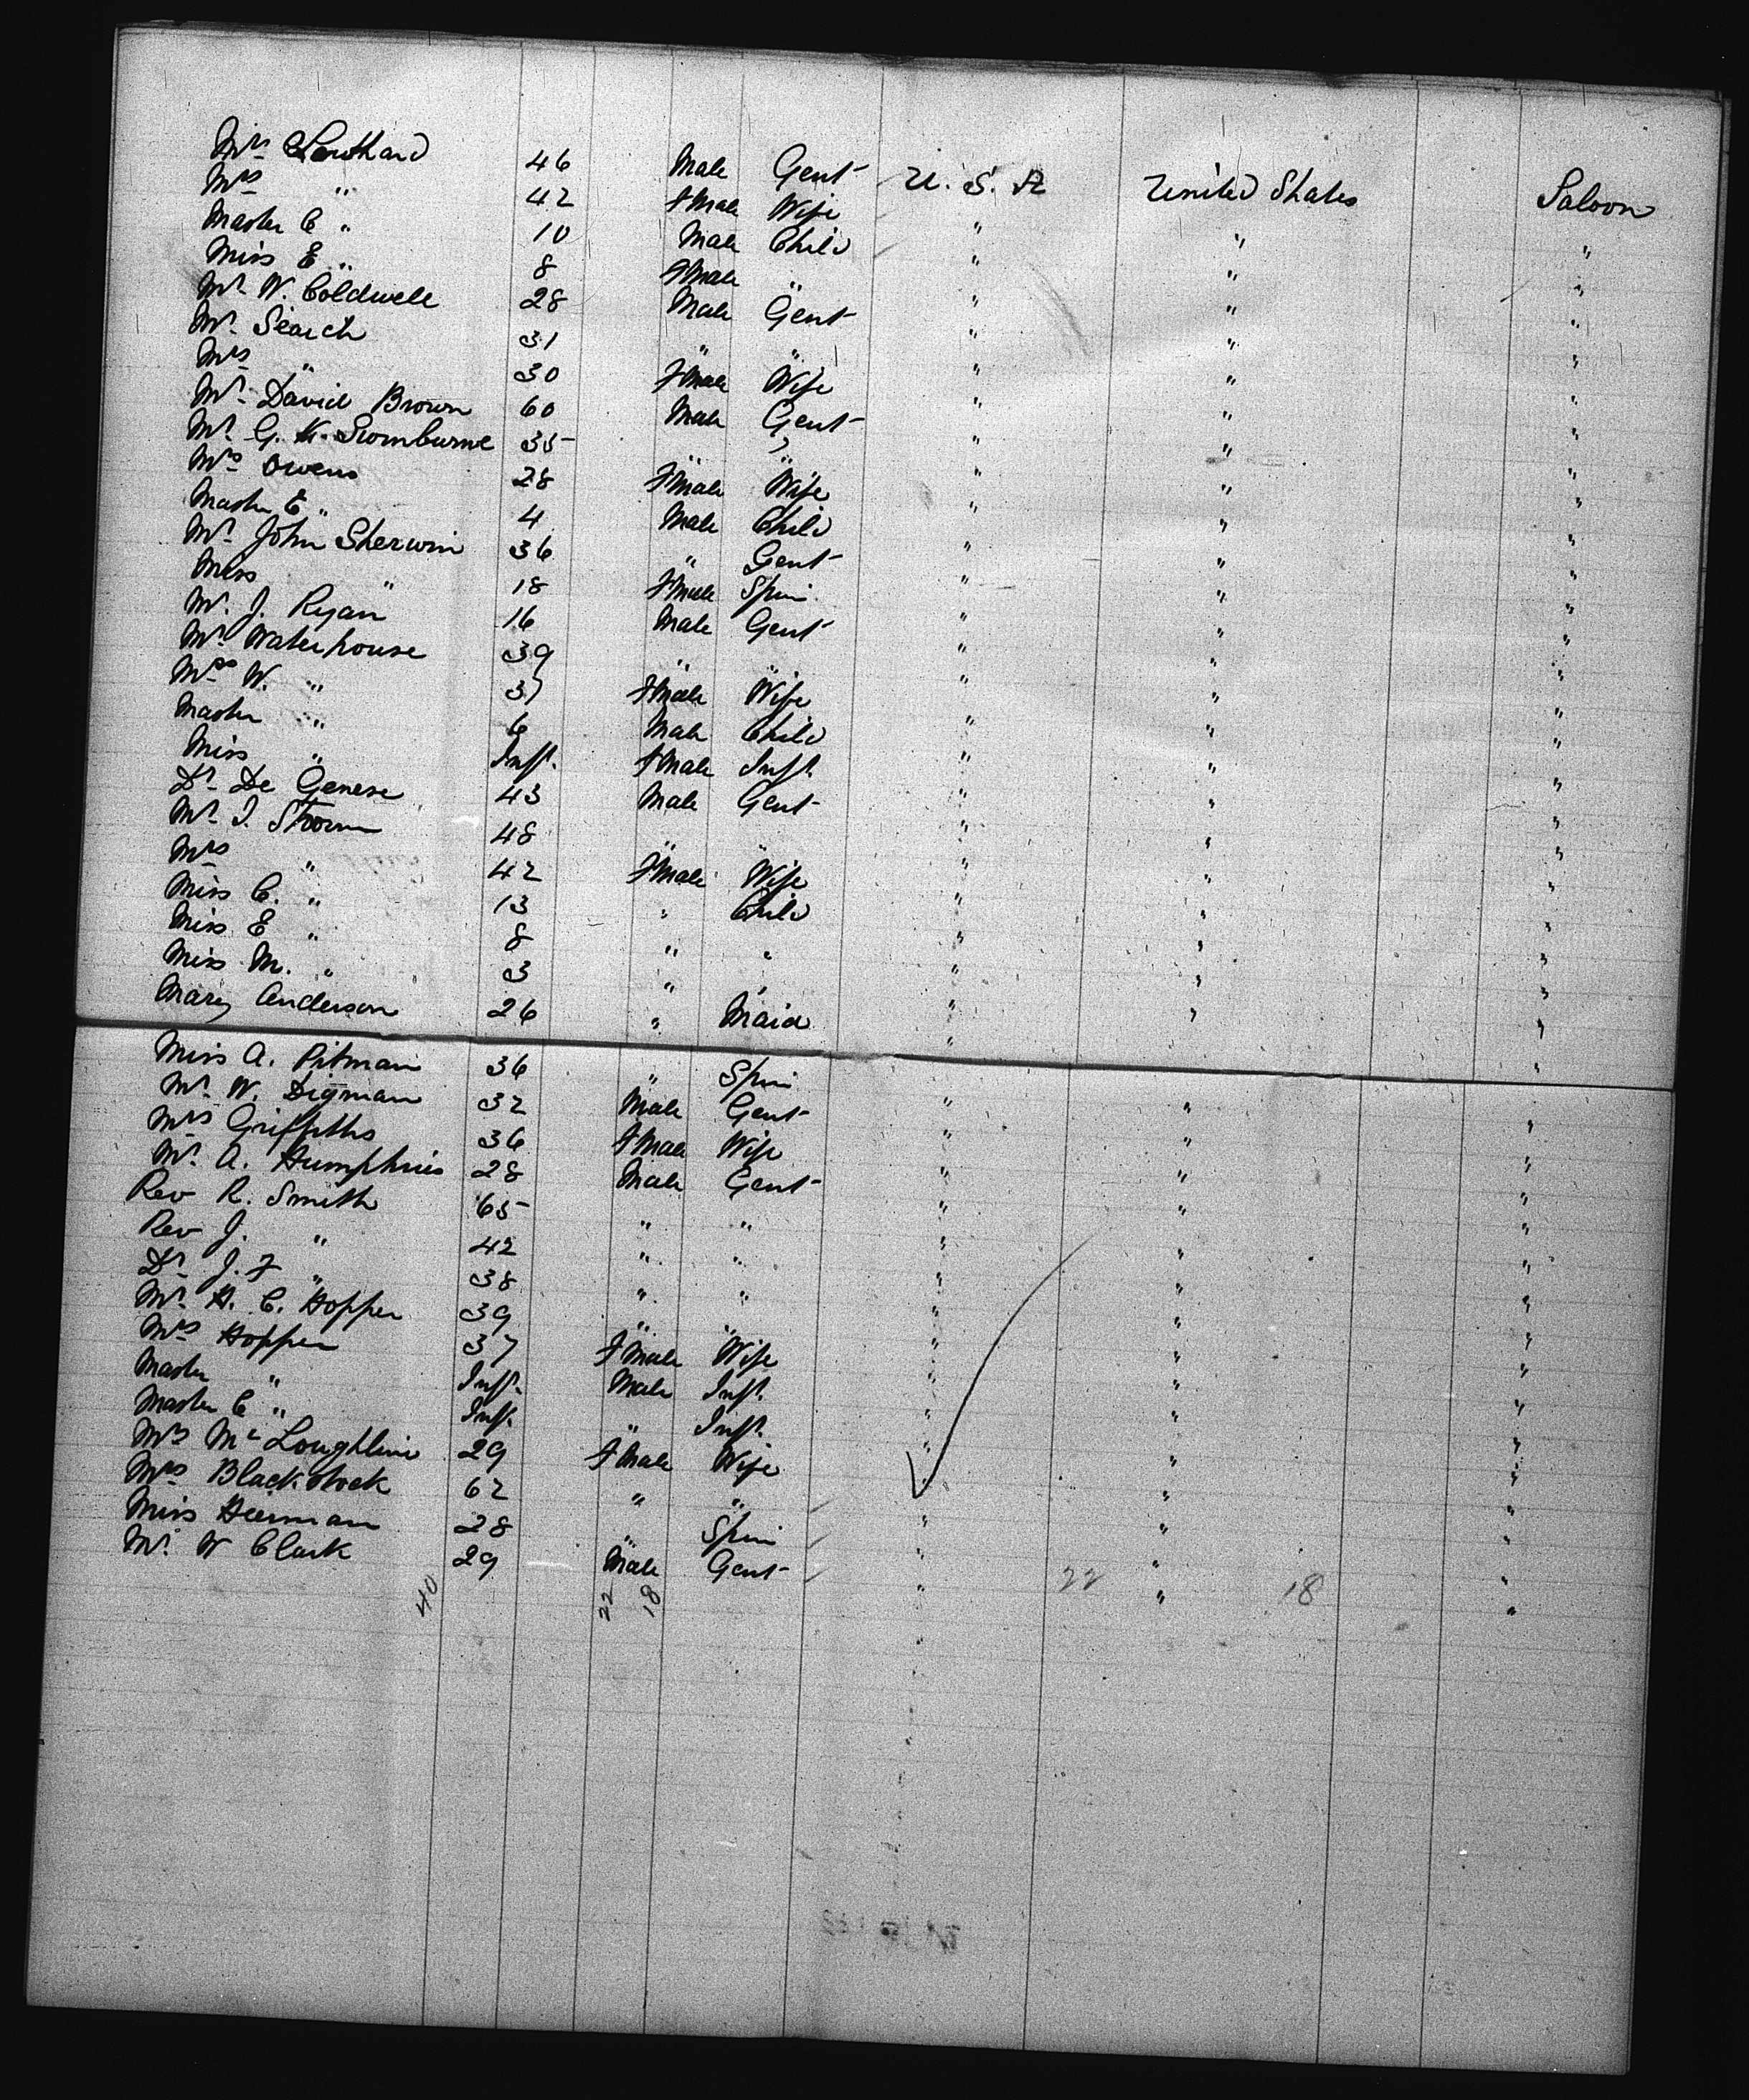 Mr Southard 46 Male Gent U. S. A United States Saloon
Mrs " 42 Fmale Wife " " "
Master C " 10 Male Child " " "
Miss E " 8 Fmale " " " "
Mr W. Coldwell 28 Male Gent " " "
Mr Search 31 " " " " "
Mrs " 30 Fmale Wife " " "
Mr David Brown 60 Male Gent " " "
Mr G. K. Swinburne 35 " " " " "
Mrs Owens 28 Fmale Wife " " "
Master E " 4 Male Child " " "
Mr John Sherwin 36 " Gent " " "
Miss " 18 Fmale Spin " " "
Mr. J. Ryan 16 Male Gent " " "
Mr Waterhouse 39 " " " " "
Mrs W. " 37 Fmale Wife " " "
Master " 6 Male Child " " "
Miss " Inft. Fmale Inft. " " "
Dr De Genese 43 Male Gent " " "
Mr 48 " " " " "
Mrs " 42 Fmale Wife " " "
Miss C. " 13 " Child " " "
Miss E " 8 " " " " "
Miss M. " 3 " " " " "
Mary Anderson 26 " Maid " " "
Miss A. Pitman 36 " Spin " " "
Mr W. Digman 32 Male Gent " " "
Mrs Griffiths 36 Fmale Wife " " "
Mr. A. Humphries 28 Male Gent " " "
Rev R. Smith 65 " " " " "
Rev J. " 42 " " " " "
Dr J. F " 38 " " " " "
Mr. H. C. Hopper 39 " " " " "
Mrs Hopper 37 Fmale Wife " " "
Master " Inft. Male Inft. " " "
Master C " Inft. " Inft. " " "
Mrs McLoughlin 29 Fmale Wife " " "
Mrs Blackstock 62 " " " " "
Miss Heirman 28 " Spin " " "
Mr. W Clark 29 Male Gent " " "
40 22 18 22 18